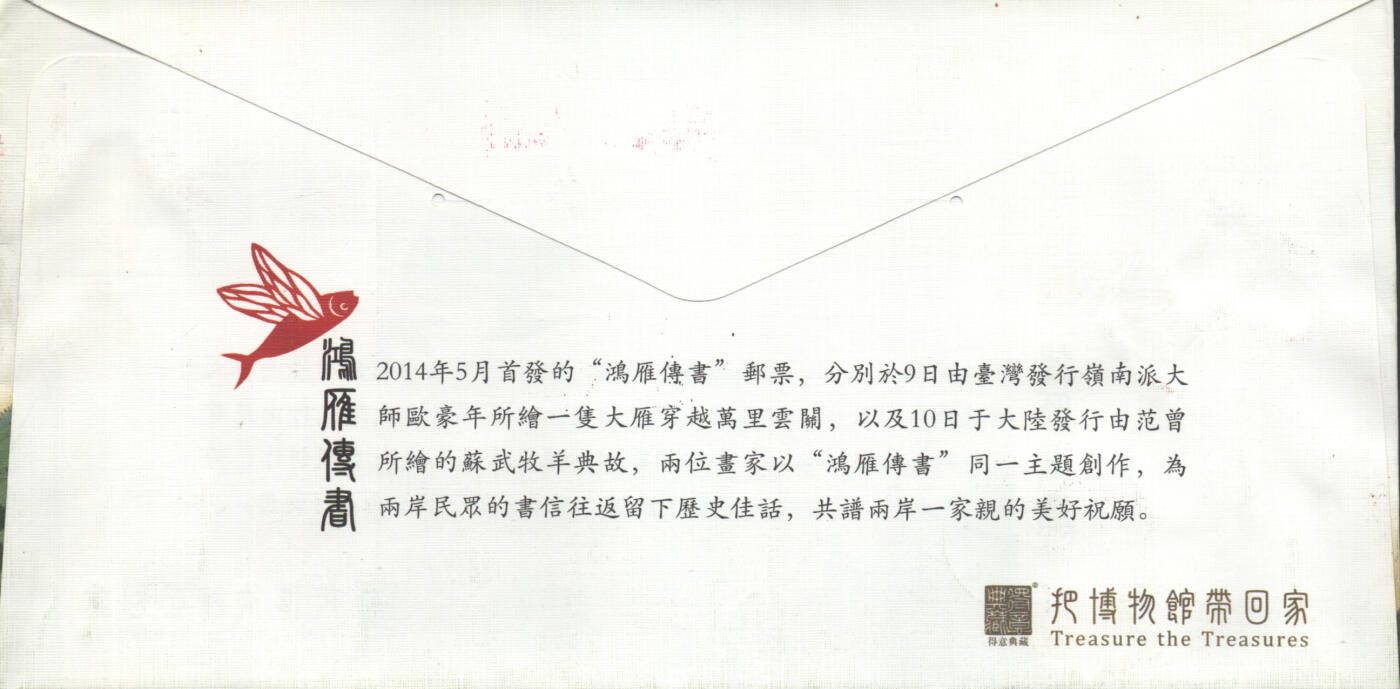 鴻雁傳書
2014年5月首發的“鴻雁傳書”郵票，分別於9日由臺灣發行嶺南派大
師歐豪年所繪一隻大雁穿越萬里雲關，以及10日于大陸發行由范曾
所繪的蘇武牧羊典故，兩位畫家以“鴻雁傳書”同一主題創作，為
兩岸民眾的書信往返留下歷史佳話，共譜兩岸一家親的美好祝願。
得意典藏
得意典藏
把博物館帶回家
Treasure the Treasures